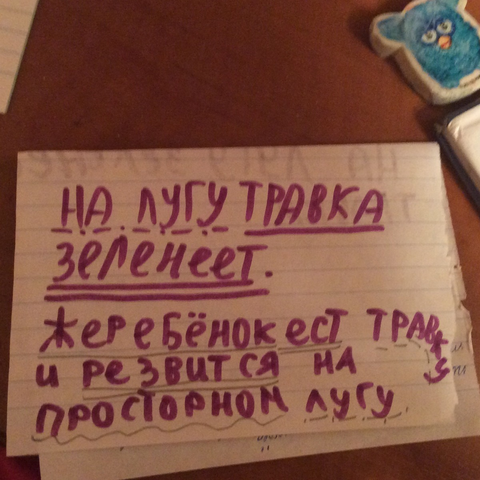 НА ЛУГУ ТРАВКА
ЗеЛеНееТ.
ЖеРеБЁНОК еСТ ТРАВКУ
и РеЗВиТСЯ НА
ПРОСТОРНОМ ЛУГУ